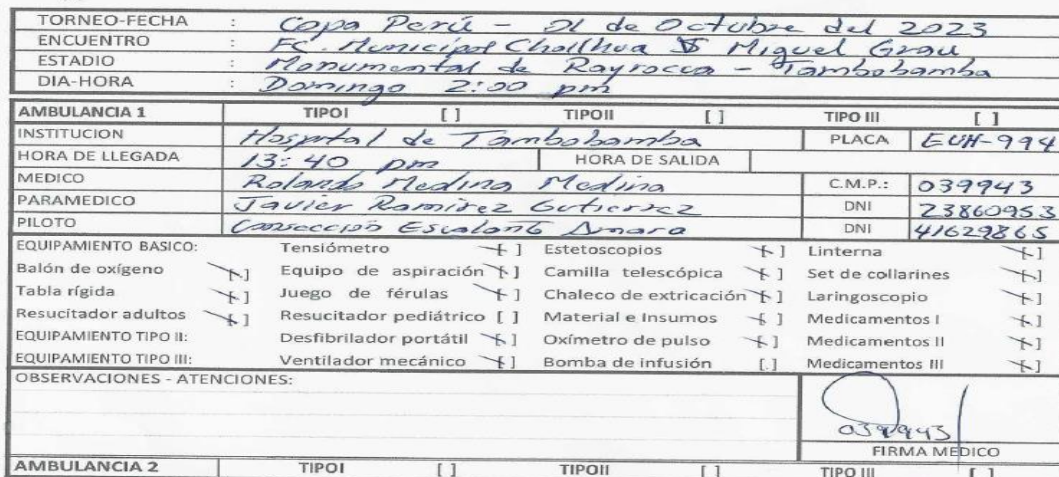 TORNEO-FECHA : Copa Perú - 01 de Octubre del 2023
ENCUENTRO : FC. Municipal Challhua VS Miguel Grau
ESTADIO : Monumental de Rayrocca - Tambobamba
DIA-HORA : Domingo 2:00 pm
AMBULANCIA 1 TIPOI [ ] TIPOII [ ] TIPO III [ ]
INSTITUCION Hospital de Tambobamba PLACA EUH-994
HORA DE LLEGADA 13:40 pm HORA DE SALIDA
MEDICO Rolando Medina Medina C.M.P.: 039943
PARAMEDICO Javier Ramirez Gutierrez DNI 23860953
PILOTO Escalante DNI 41629865
EQUIPAMIENTO BASICO: Tensiómetro [x] Estetoscopios [x] Linterna [x]
Balón de oxígeno [x] Equipo de aspiración [x] Camilla telescópica [x] Set de collarines [x]
Tabla rígida [x] Juego de férulas [x] Chaleco de extricación [x] Laringoscopio [x]
Resucitador adultos [x] Resucitador pediátrico [ ] Material e Insumos [x] Medicamentos I [x]
EQUIPAMIENTO TIPO II: Desfibrilador portátil [x] Oxímetro de pulso [x] Medicamentos II [x]
EQUIPAMIENTO TIPO III: Ventilador mecánico [x] Bomba de infusión [ ] Medicamentos III [x]
OBSERVACIONES - ATENCIONES:
039943
FIRMA MEDICO
AMBULANCIA 2 TIPOI [ ] TIPOII [ ] TIPO III [ ]